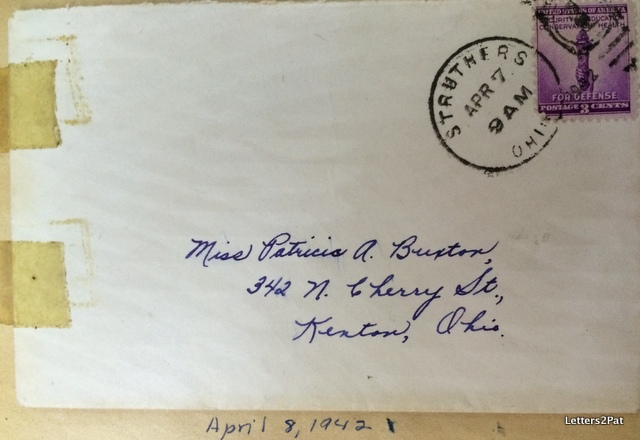 UNITED STATES OF AMERICA
SECURITY EDUCATION
CONSERVATION HEALTH
FOR DEFENSE
POSTAGE 3 CENTS
STRUTHERS
APR 7
9 AM
OHIO
Miss Patricia A. Buxton,
342 N. Cherry St.,
Kenton, Ohio.
April 8, 1942
Letters2Pat